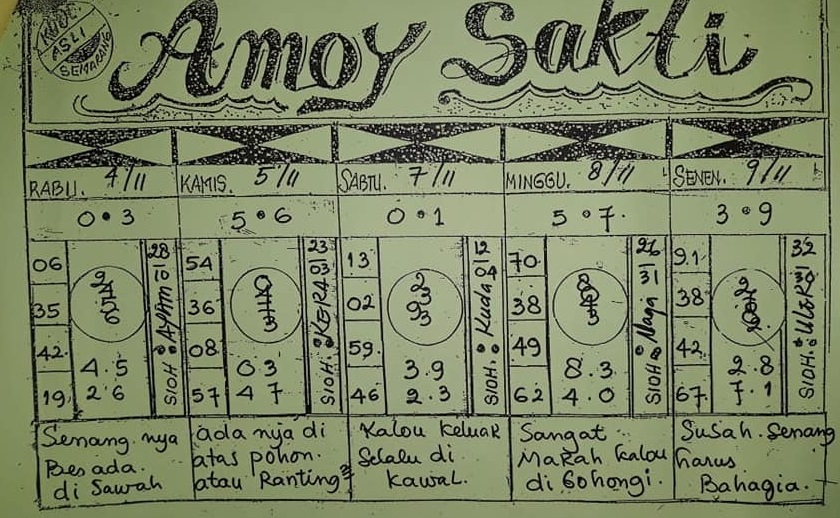 KODE
ASLI
SEMARANG
Amoy Sakti
RABU. 4/11
KAMIS. 5/11
SABTU. 7/11
MINGGU. 8/11
SENEN. 9/11
0•3
5•6
0•1
5•7.
3•9
06
35
42.
19
4.5
2 6
SIOH: AYAM
28
01
54
36
08
57
03
4 7
SIOH: KERA
23
13
02
59.
46
3.9
2.3
SIOH: Kuda
12
04
70.
38
49
62
8.3
4.0
SIOH: Naga
26
31
91
38
42
67
2.8
7.1
SIOH: ULER
32
Senang nya
Bes ada.
di Sawah
ada nya di
atas pohon.
atau Ranting²
Kalou Keluar
Selalu di
Kawal.
Sangat
Marah kalau
di Bohongi.
Susah. Senang
harus
Bahagia.